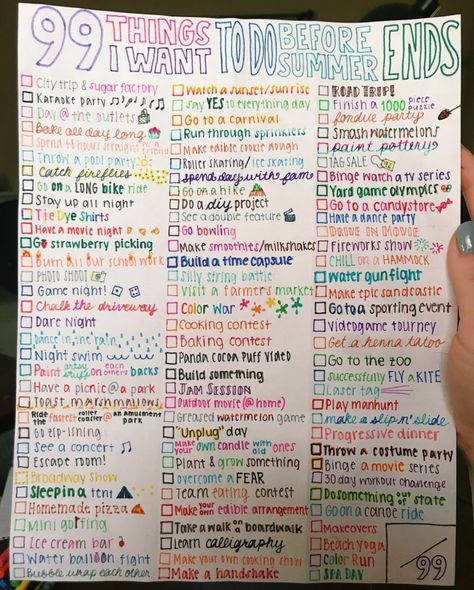 99 THINGS I WANT TO DO BEFORE SUMMER ENDS
City trip & sugar factory
Karaoke party
Day @ the outlets
Bake all day long
Spend 24 hours straight w/ a friend
Throw a pool party
Catch fireflies
Go on a LONG bike ride
Stay up all night
Tie Dye Shirts
Have a movie night
Go strawberry picking
Burn all our school work
PHOTO SHOOT
Game night!
Chalk the driveway
Dare Night
Dance in the rain
Night swim
Paint artsy stuff on each others backs
Have a picnic @ a park
Toast marshmallows
Ride the fastest roller coaster @ an amusement park
Go zip-lining
See a concert
Escape room!
Broadway show
Sleep in a tent
Homemade pizza
Mini golfing
Ice cream bar
Water balloon fight
Bubble wrap each other
Watch a sunset/sunrise
Say YES to everything day
Go to a carnival
Run through sprinklers
Make edible cookie dough
Roller skating/ice skating
spend day with fam
Go on a hike
Do a diy project
See a double feature
Go bowling
Make smoothies/milkshakes
Build a time capsule
Silly string battle
Visit a farmers market
Color War
Cooking contest
Baking contest
Panda cocoa puff video
Build something
JAM SESSION
Outdoor movie (@ home)
Greased watermelon game
"Unplug" day
Make your own candle with old ones
Plant & grow something
overcome a FEAR
Team eating contest
Make your own edible arrangement
Take a walk on a boardwalk
Learn calligraphy
Make your own cooking show
Make a handshake
ROAD TRIP!
Finish a 1000 piece puzzle
fondue party
Smash watermelons
paint pottery
TAG SALE
Binge watch a tv series
Yard game olympics
Go to a candystore
Have a dance party
DRIVE IN MOVIE
Fireworks show
CHILL on a HAMMOCK
Water gun fight
Make epic sandcastle
Go to a sporting event
Videogame tourney
Get a henna tatoo
Go to the zoo
successfully FLY a KITE
Laser tag
Play manhunt
make a slip n' slide
Progressive dinner
Throw a costume party
Binge a movie series
30 day workout challenge
Do something out of state
Go on a canoe ride
Makeovers
Beach yoga
Color Run
SPA DAY
/99